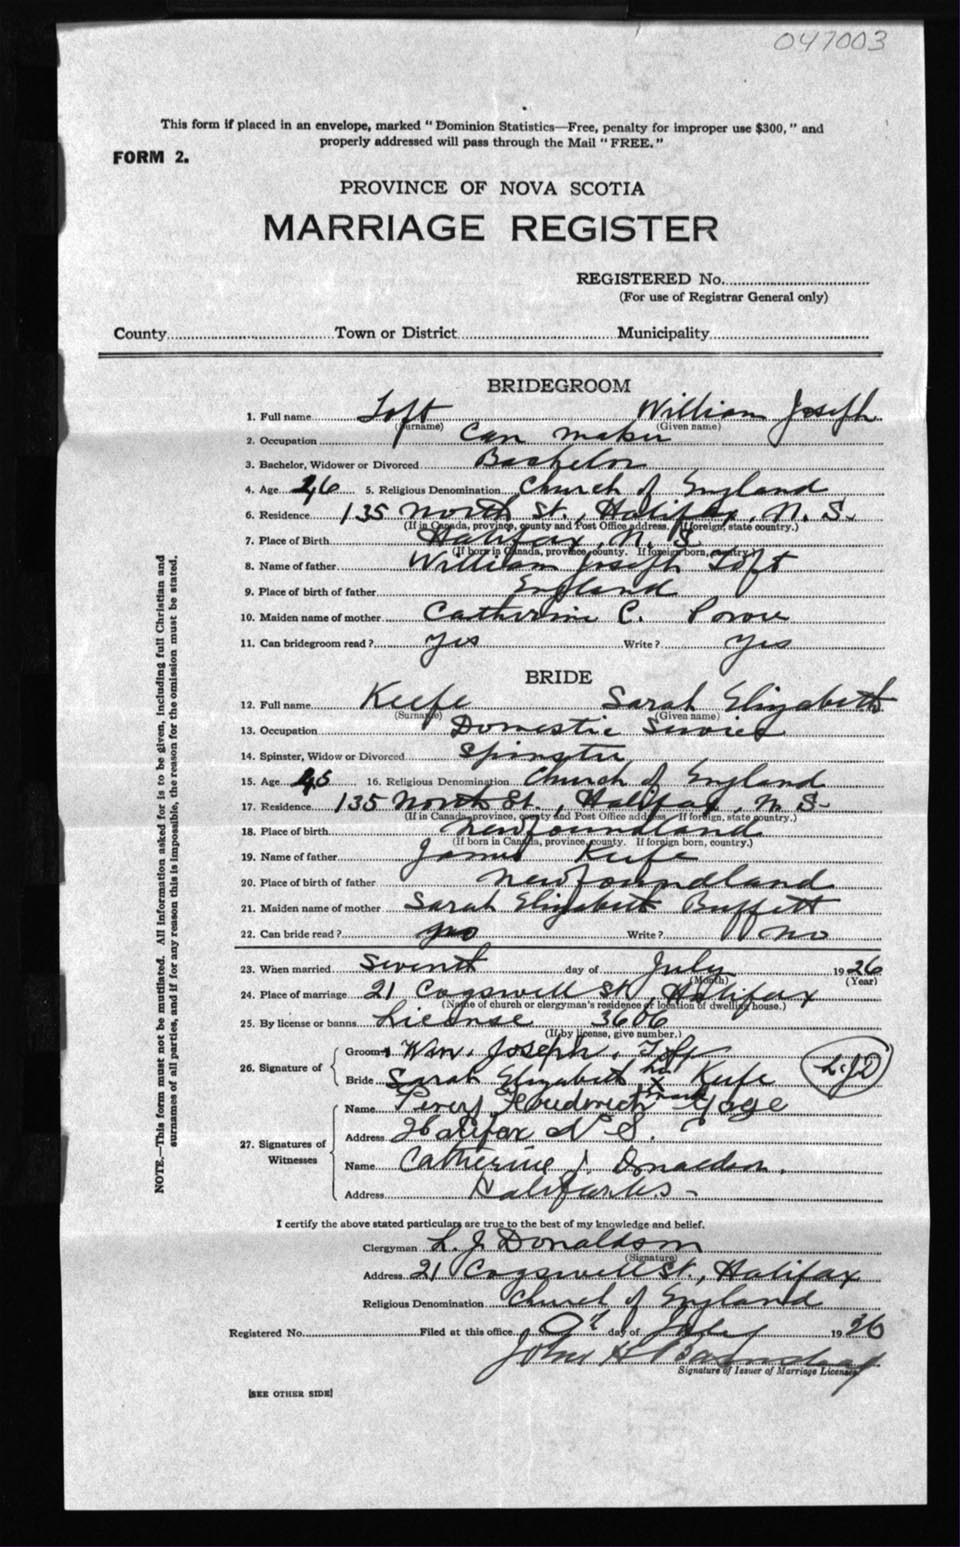 047003
This form if placed in an envelope, marked "Dominion Statistics—Free, penalty for improper use $300," and
properly addressed will pass through the Mail "FREE."
FORM 2.
PROVINCE OF NOVA SCOTIA
MARRIAGE REGISTER
REGISTERED No.
(For use of Registrar General only)
County Town or District Municipality
BRIDEGROOM
1. Full name Toft William Joseph
(Surname) (Given name)
2. Occupation Can maker
3. Bachelor, Widower or Divorced Bachelor
4. Age 26 5. Religious Denomination Church of England
6. Residence 135 North St., Halifax, N. S.
(If in Canada, province, county and Post Office address. If foreign, state country.)
7. Place of Birth Halifax, N. S.
(If born in Canada, province, county. If foreign born, country.)
8. Name of father William Joseph Toft
9. Place of birth of father England
10. Maiden name of mother Catherine C.
11. Can bridegroom read? yes Write? yes
BRIDE
12. Full name Keefe Sarah Elizabeth
(Surname) (Given name)
13. Occupation Domestic Service
14. Spinster, Widow or Divorced Spinster
15. Age 16. Religious Denomination Church of England
17. Residence 135 North St., Halifax, N. S.
(If in Canada, province, county and Post Office address. If foreign, state country.)
18. Place of birth Newfoundland
(If born in Canada, province, county. If foreign born, country.)
19. Name of father James Keefe
20. Place of birth of father Newfoundland
21. Maiden name of mother Sarah Elizabeth Buffett
22. Can bride read? no Write? no
23. When married Seventh day of July 1926
(Month) (Year)
24. Place of marriage 21 Cogswell St., Halifax
(Name of church or clergyman's residence or location of dwelling house.)
25. By license or banns License 3606
(If by license, give number.)
26. Signature of
Groom Wm. Joseph. Toft
Bride Sarah Elizabeth her X mark Keefe
L.J.D
27. Signatures of Witnesses
Name Percy Frederick
Address Halifax N S.
Name Catherine J. Donaldson.
Address Halifax N.S.
I certify the above stated particulars are true to the best of my knowledge and belief.
Clergyman L. J. Donaldson
(Signature)
Address 21 Cogswell St., Halifax
Religious Denomination Church of England
Registered No. Filed at this office day of July 1926
John H
Signature of Issuer of Marriage Licenses
[SEE OTHER SIDE]
NOTE.—This form must not be mutilated. All information asked for is to be given, including full Christian and
surnames of all parties, and if for any reason this is impossible, the reason for the omission must be stated.